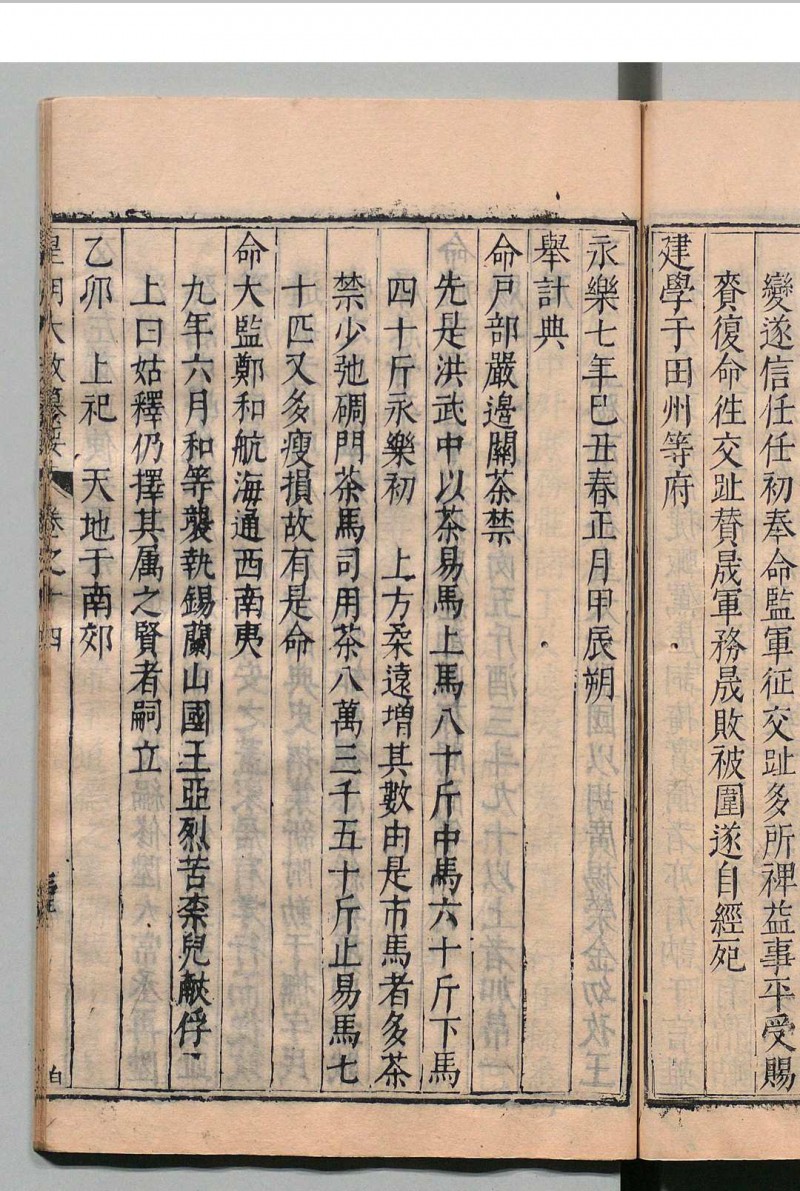 變遂信任任初奉命監軍征交趾多所裨益事平受賜
賚復命徃交趾賛晟軍務晟敗被圍遂自經死
建學于田州等府
永樂七年己丑春正月甲辰朔
舉計典
命戸部嚴邊關茶禁
先是洪武中以茶易馬上馬八十斤中馬六十斤下馬
四十斤永樂初　上方柔遠増其數由是市馬者多茶
禁少弛碉門茶馬司用茶八萬三千五十斤止易馬七
十匹又多瘦損故有是命
命大監鄭和航海通西南夷
九年六月和等襲執錫蘭山國王亞烈苦柰兒獻俘
上曰姑釋仍擇其属之賢者嗣立
乙卯　上祀　天地于南郊
皇明大政纂要　卷之十四
白